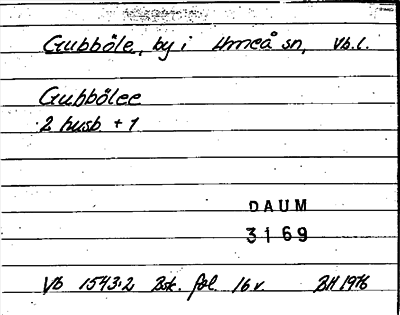 Gubböle, by i Umeå sn, Vb.l.
Gubbölee
2 husb. + 1
DAUM
3169
Vb 1543:2 Bsk. fol. 16 v. BH 1976